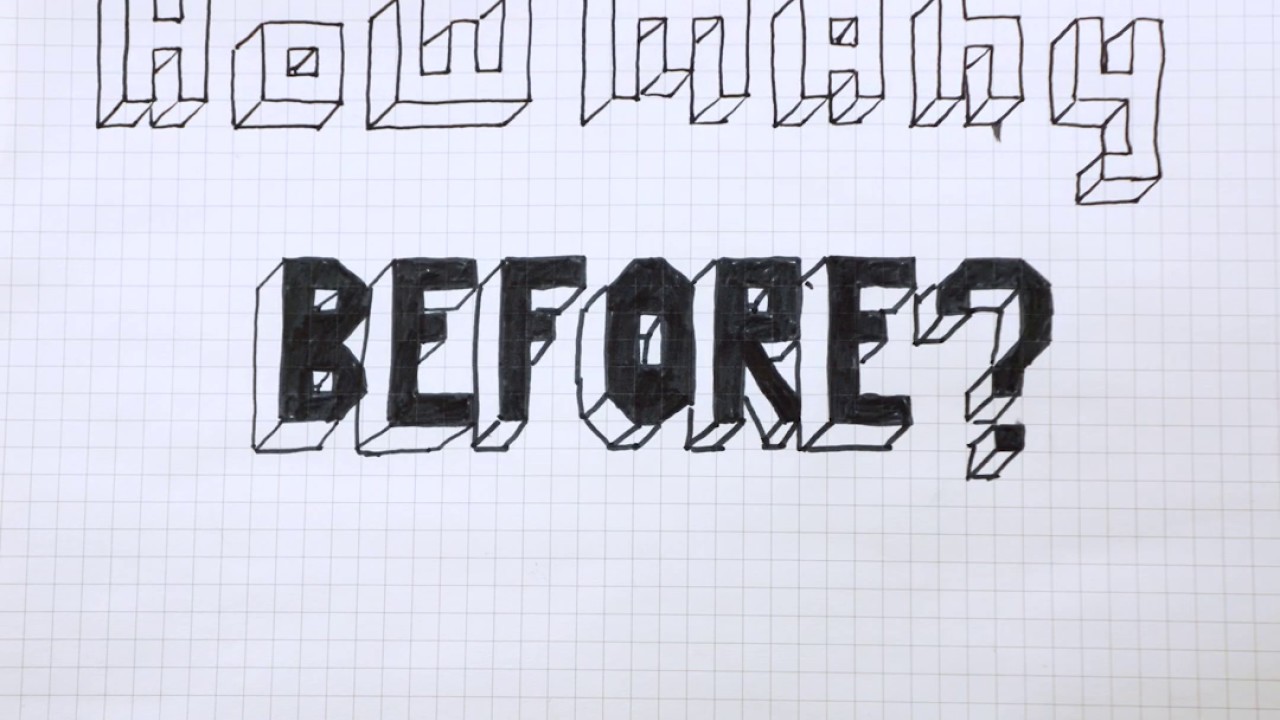 How mAny
BEFORE?